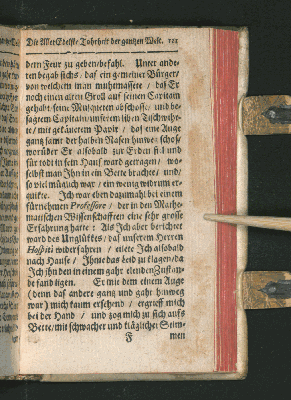 Die Aller Edelste Tohrheit der gantzen Welt. 121
dern Feur zu geben/befahl. Unter ande-
ren begab sichs / daß ein gemeiner Bürger/
von welchem man muhtmaſsete / daß Er
noch einen alten Groll auf seinen Capitain
gehabt/ seine Musqueten abschosse/ und be-
sagtem Capitain/ unserm lieben Tischwihr-
te/ mit gekäuetem Papir / daß eine Auge
gantz samt der halben Nasen hinweg schos/
worüber Er alsobald zur Erden fiel und
für todt in sein Hauß ward getragen / wo-
selbst man Ihn in ein Bette brachte/ und/
so viel müglich war / ein wenig widrum er-
quikte. Ich war eben dazumahl bei einem
fürnehmen Professore / der in den Mathe-
matischen Wissenschafften eine sehr grosse
Erfahrung hatte : Als Ich aber berichtet
ward des Unglükkes / das unserem Herren
Hospiti widerfahren / eilete Ich alsobald
nach Hause / Ihme das Leid zu klagen/da
Ich ihn den in einem gahr elenden Zustan-
de fand ligen. Er mit dem einem Auge
(denn das andere gantz und gahr hinweg
war) mich kaum ersehend / ergreiff mich
bei der Hand / und zog mich zu sich aufs
Bette/ mit schwacher und kläglicher Stim-
F men